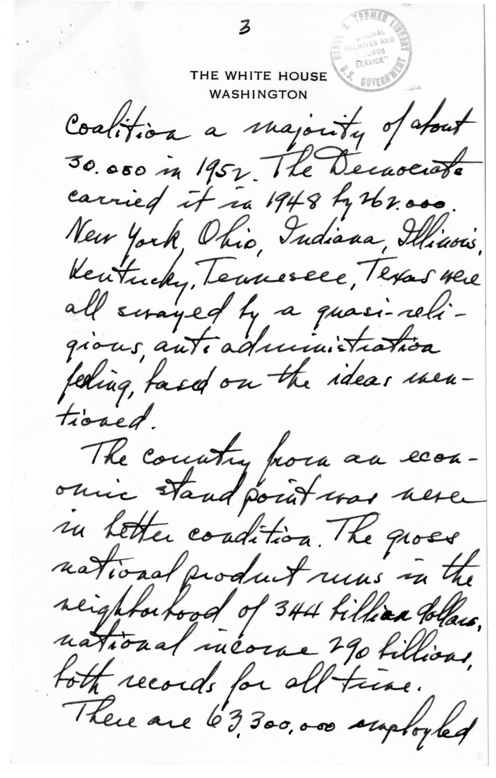 3
HARRY S. TRUMAN LIBRARY
ARCHIVES AND
RECORDS
SERVICE"
U.S. GOVERNMENT
THE WHITE HOUSE
WASHINGTON
coalition a majority of about
30.000 in 1952. The Democrats
carried it in 1948 by 262.000.
New York, Ohio, Indiana, Illinois,
Kentucky, Tennessee, Texas were
all swayed by a quasi-reli-
gious, anti administration
feeling, based on the ideas men-
tioned.
The country from an econ-
omic stand point was never
in better condition. The gross
national product runs in the
neighborhood of 344 billion dollars,
national income 290 billions,
both records for all time.
There are 63,300,000 employled